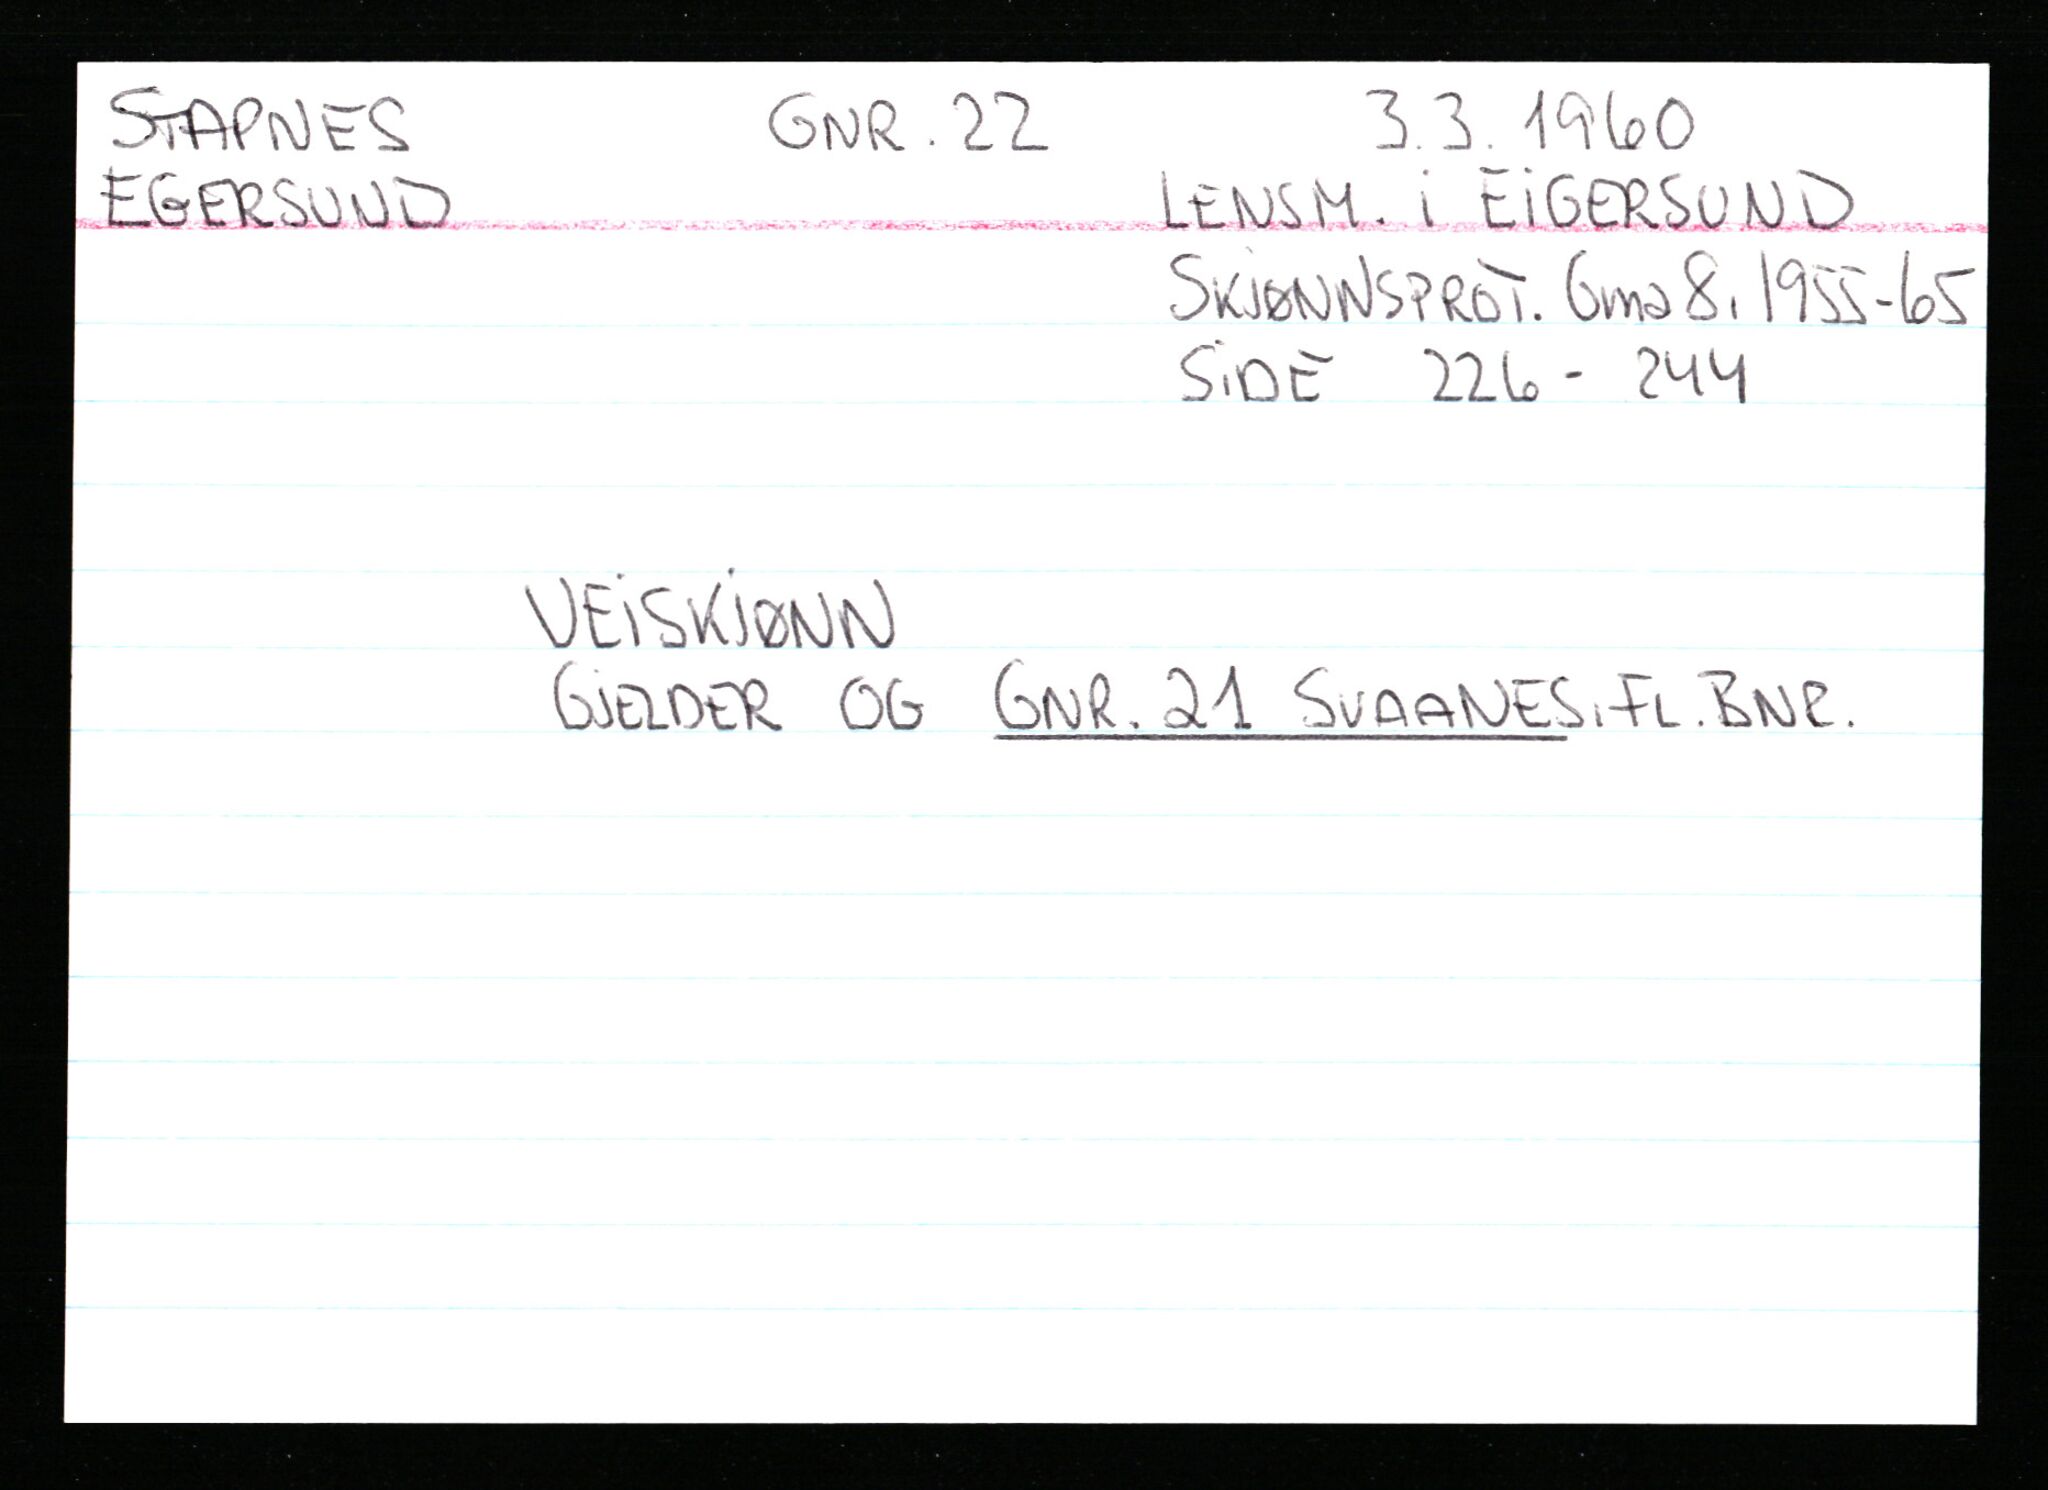 STAPNES GNR. 22 3.3.1960
EGERSUND LENSM. i EiGERSUND
SKJØNNSPROT. Gma 8, 1955-65
SiDE 226 - 244
VEiSKJØNN
GJELDER OG GNR. 21 SVAANES, FL. BNR.